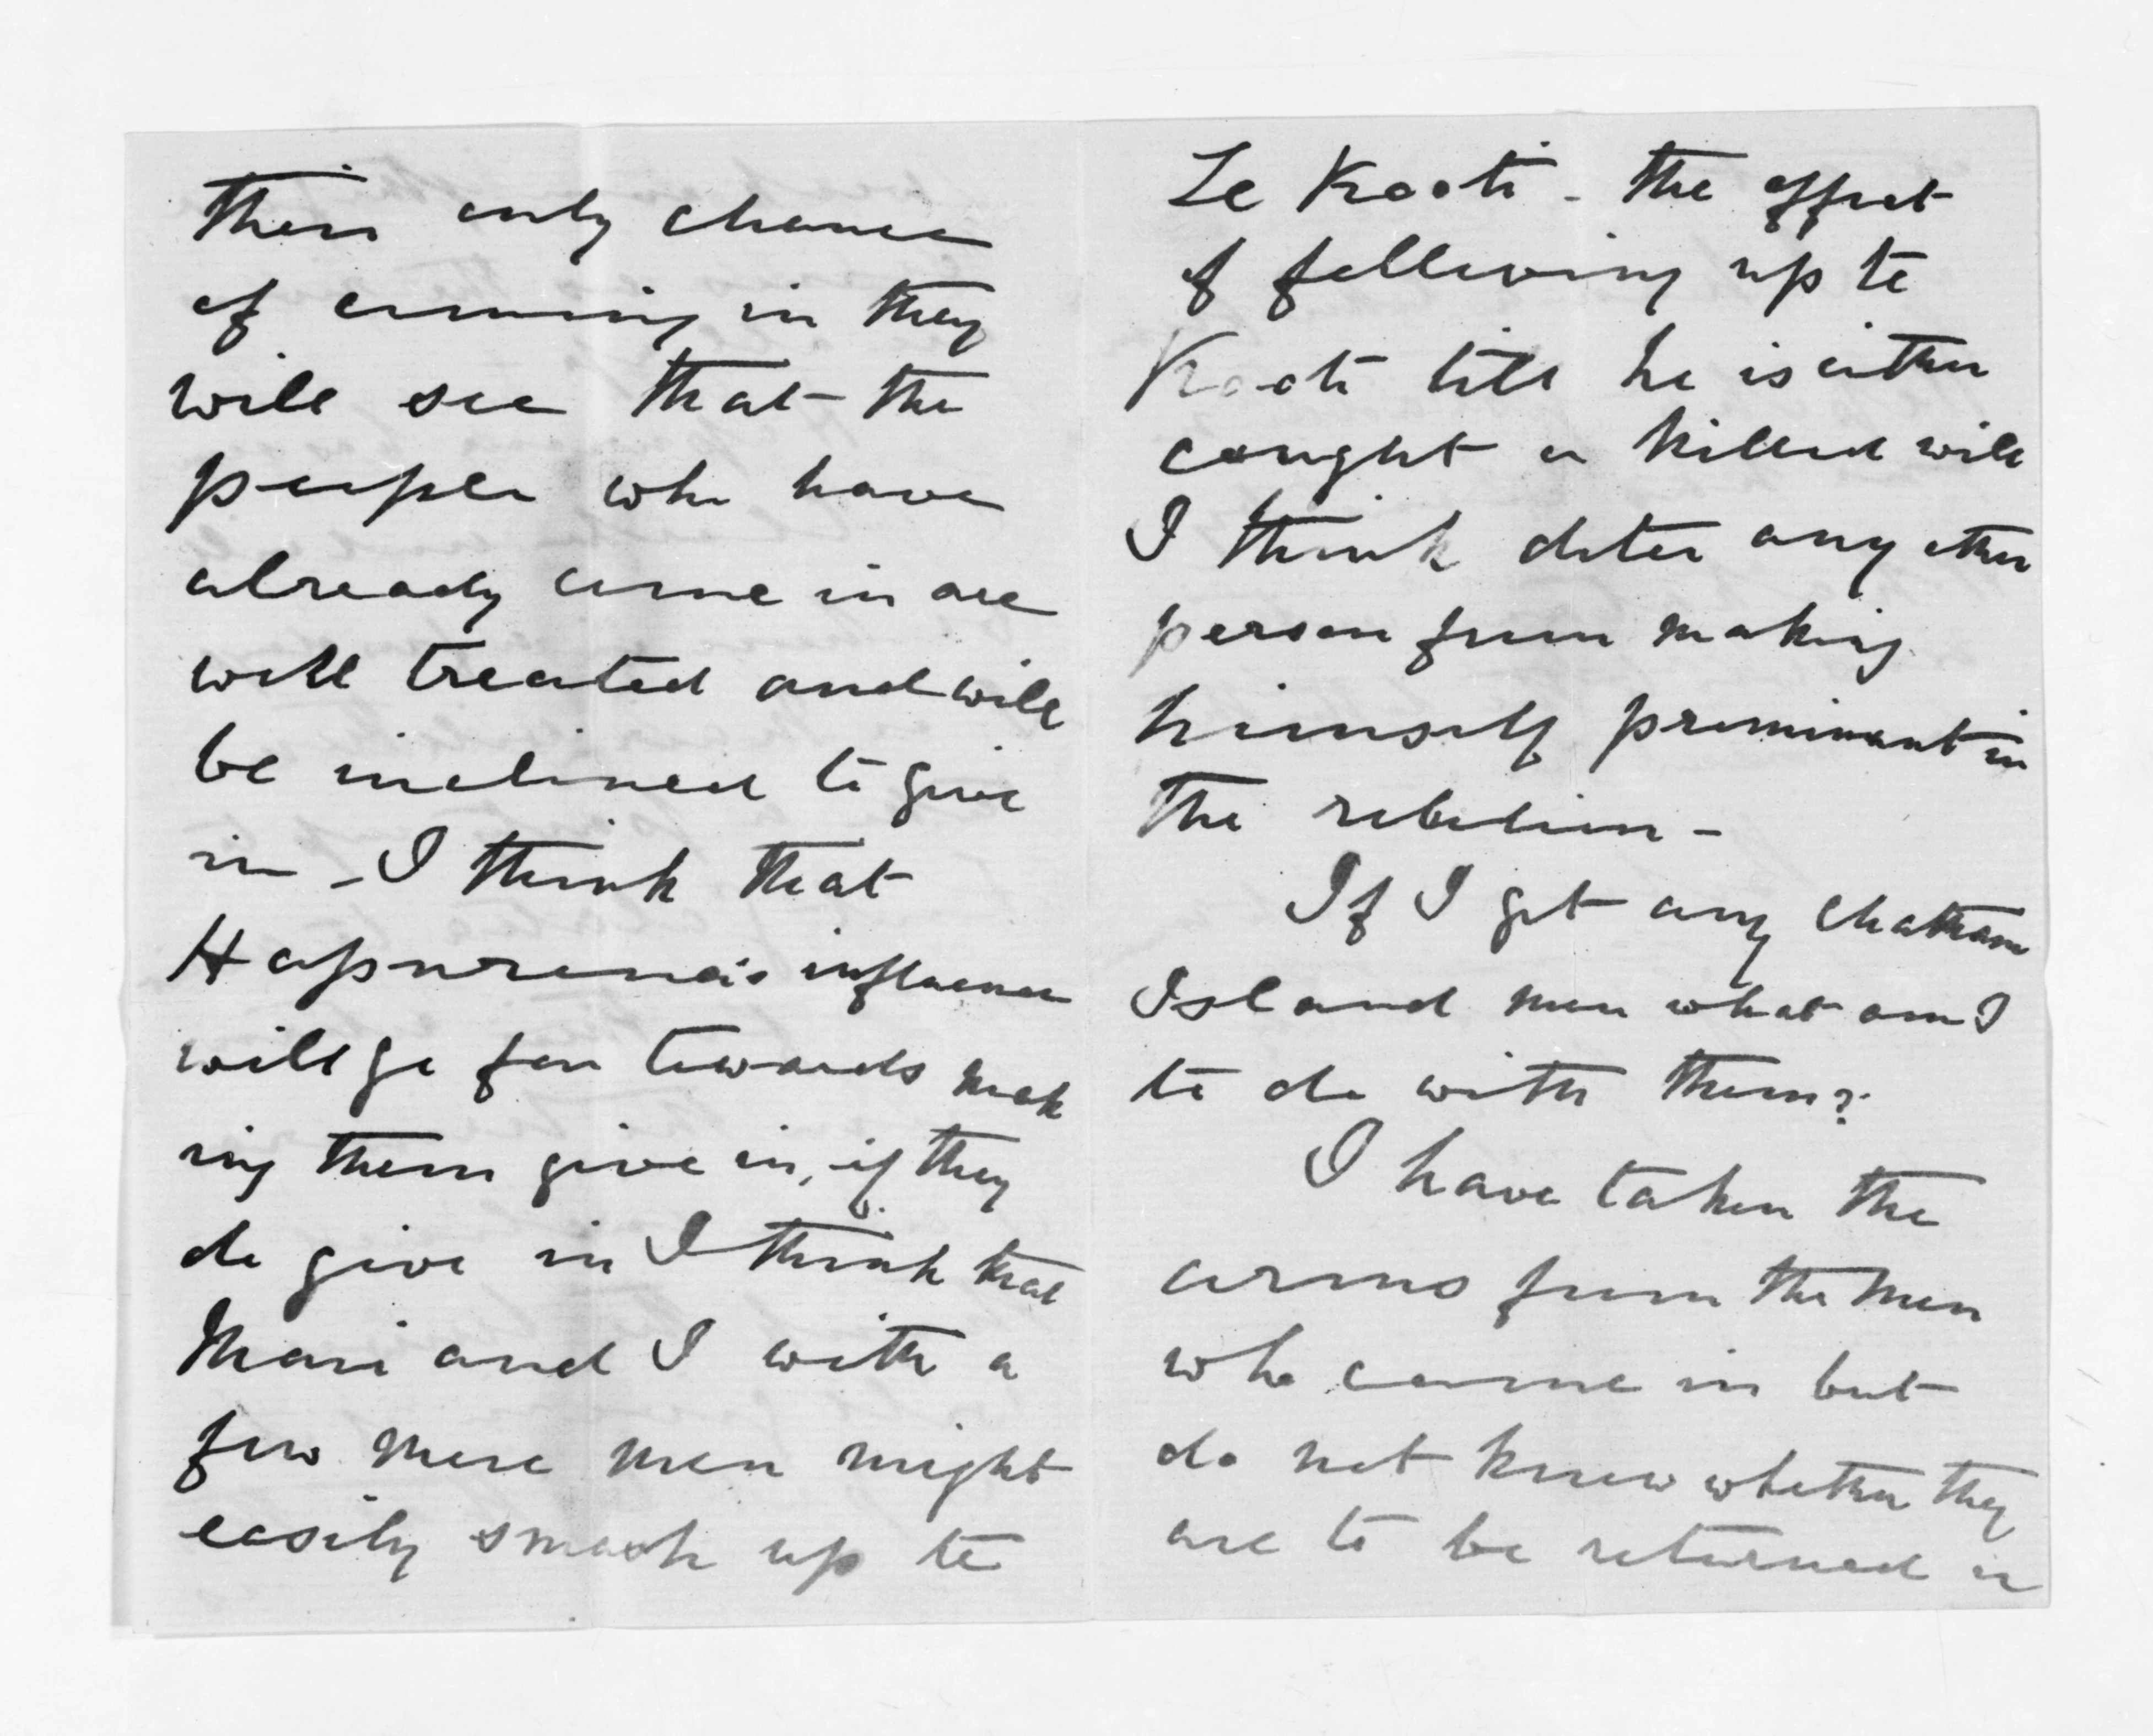 their only chance
of coming in they
will see that the
people who have
already come in are
well treated and will
be inclined to give
in - I think that
Hapurona's influence
will go far towards mak
ing them give in, if they
do give in I think that
Mair and I with a
few more men might
easily smash up te
Te Kooti - the effect
of following up te
Kooti till he is either
caught or killed will
I think deter any other
person from making
himself prominent in
the rebelion -
If I get any Chatham
Island men what am I
to do with them?
I have taken the
arms from the men
who came in but
do not know whether they
are to be returned or